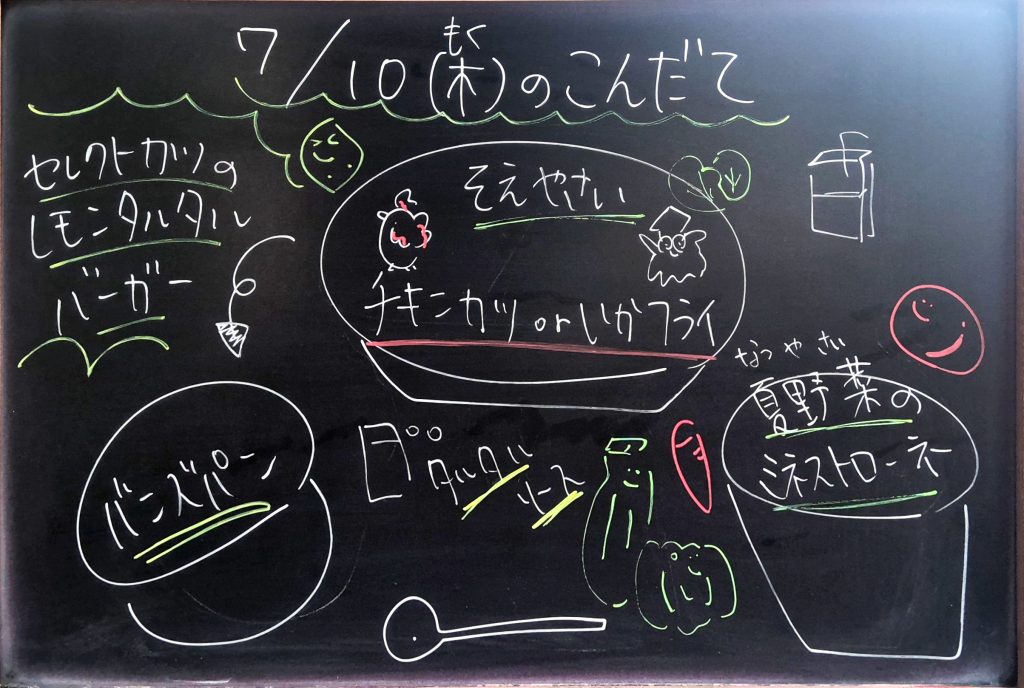 もく
7/10(木)のこんだて
セレクトカツの
レモンタルタル
バーガー
そえやさい
チキンカツorいかフライ
バンズパン
タルタル
ソース
なつやさい
夏野菜の
ミネストローネ